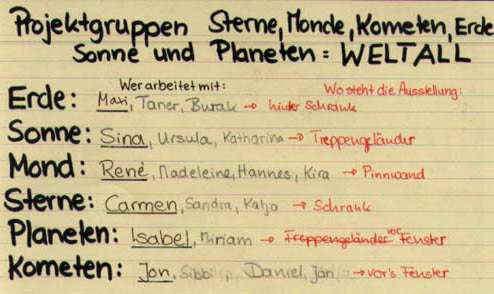 Projektgruppen Sterne, Monde, Kometen, Erde
Sonne und Planeten = WELTALL
Wer arbeitet mit: Wo steht die Ausstellung:
Erde: Maxi, Taner, Burak → hinter Schrank
Sonne: Sina, Ursula, Katharina → Treppengeländer
Mond: René, Madeleine, Hannes, Kira → Pinnwand
Sterne: Carmen, Sandra, Katja → Schrank
Planeten: Isabel, Miriam → Treppengeländer vor Fenster
Kometen: Jon, Daniel, Jan → vor's Fenster